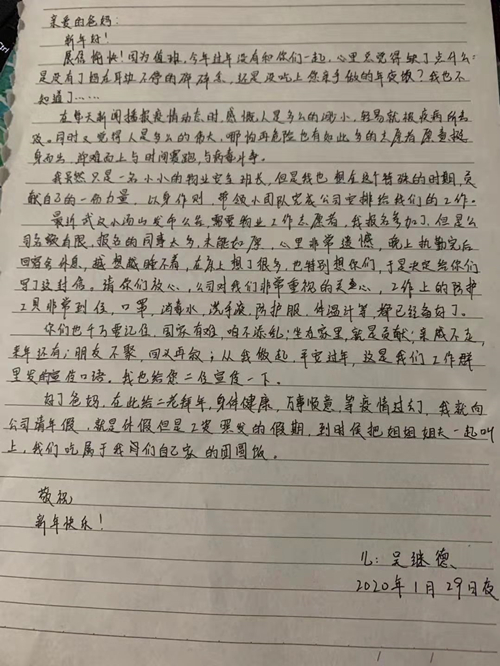 亲爱的爸妈：
新年好！
展信愉快！因为值班，今年过年没有和你们一起，心里总觉得缺了点什么：
是没有了妈在耳边不停的碎碎念，还是没吃上您亲手做的年夜饭？我也不
知道了……
在每天新闻播报疫情动态时，感慨人是多么的渺小，轻易就被疾病所击
败。同时又觉得人是多么的伟大，哪怕再危险也有如此多的志愿者愿意挺
身而出，迎难而上与时间赛跑，与病毒斗争。
我虽然只是一名小小的物业安全班长，但是我也想在这个特殊的时期，贡
献自己的一份力量，以身作则，带领小团队完成公司安排给我们的工作。
最近武汉小汤山发布公告，需要物业工作志愿者，我报名参加了，但是公
司名额有限，报名的同事太多，未能如愿，心里非常遗憾，晚上执勤完后
回宿舍休息，越想越睡不着，在床上想了很多，也特别想你们，于是决定给你们
写了这封信。请你们放心，公司对我们非常重视的关心，工作上的防护
工具非常到位，口罩，消毒水，洗手液，防护服，体温计等都已经备好了。
你们也千万要记住，国家有难，咱不添乱；坐在家里，就是贡献；亲戚不走，
来年还有；朋友不聚，回头再叙；从我做起，平安过年，这是我们工作群
里发的宣传口语。我也给您二位宣传一下。
好了爸妈，在此给二老拜年，身体健康，万事顺意，等疫情过了，我就向
公司请年假，就是休假但是工资照发的假期，到时候把姐姐姐夫一起叫
上，我们吃属于我们自己家的团圆饭。
敬祝
新年快乐！
儿：吴继德
2020年1月29日夜